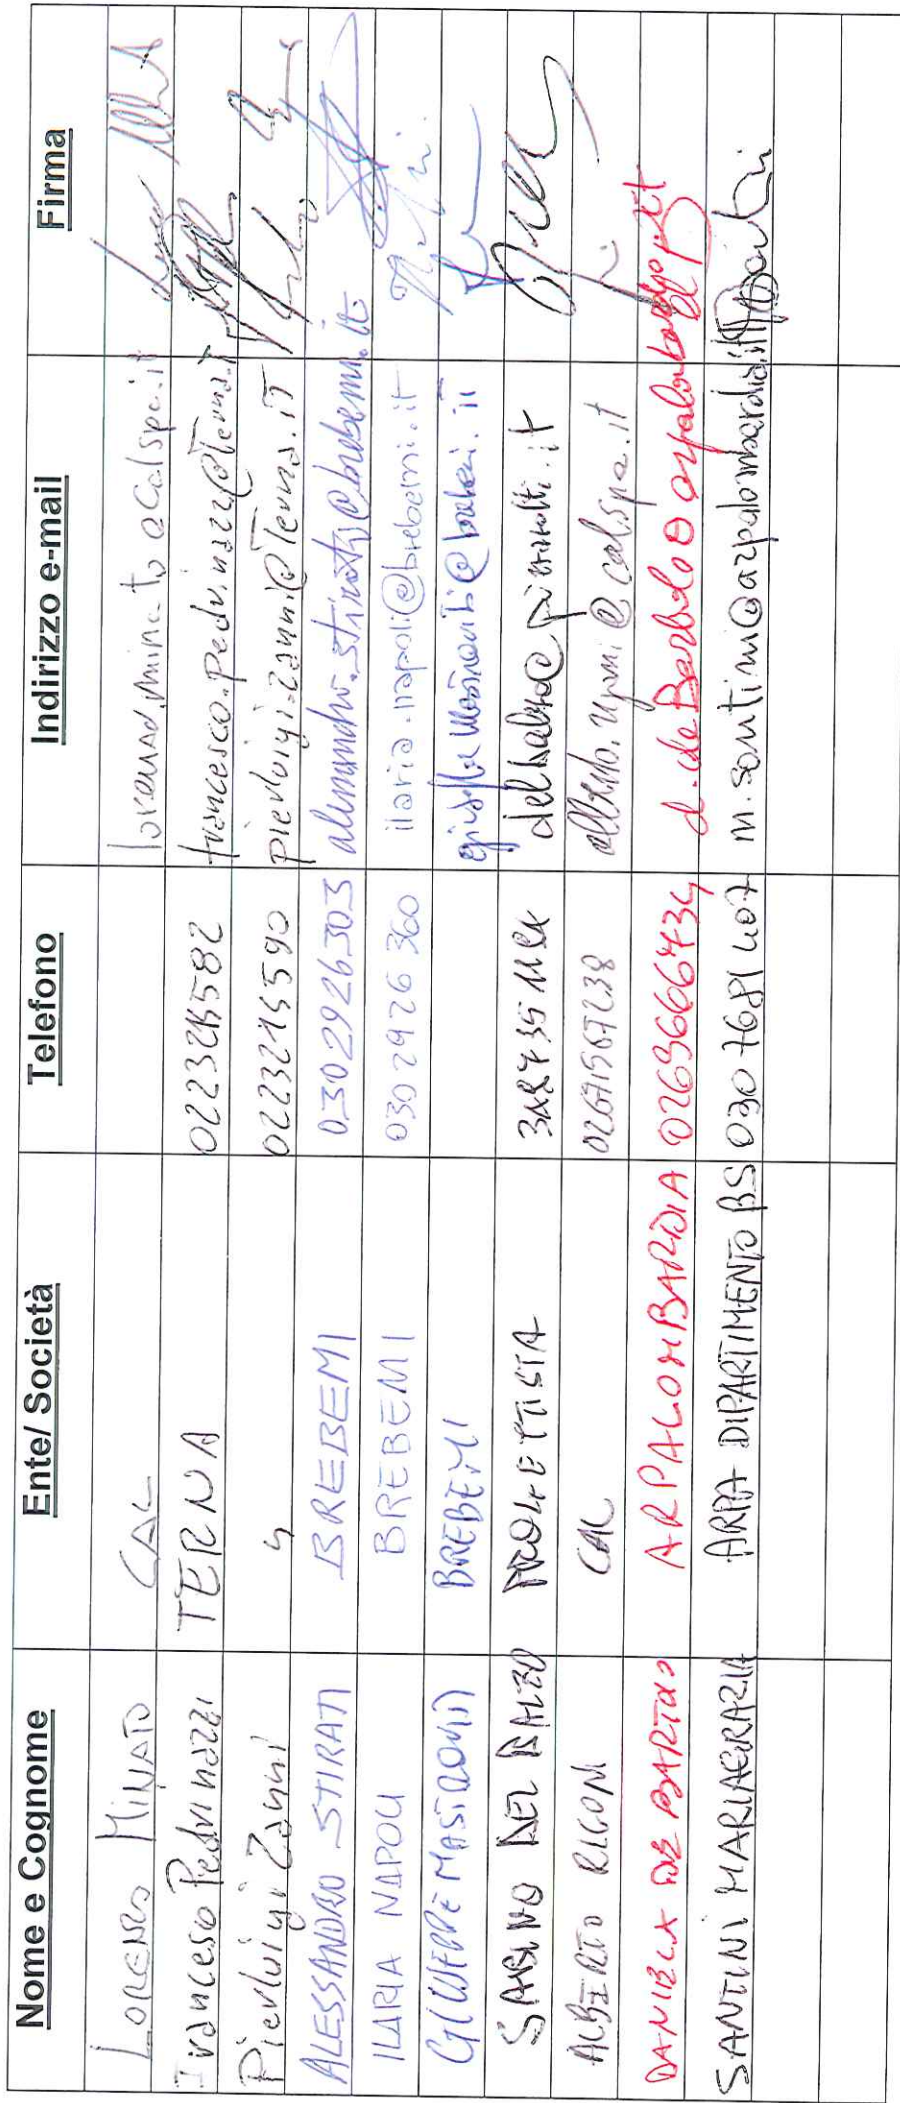 Nome e Cognome Ente/ Società Telefono Indirizzo e-mail Firma
LORENZO MINATO CAL lorenzo.minato@calspa.it
Francesco Pedrinazzi TERNA 0223215582 francesco.pedrinazzi@terna.it
Pierluigi Zanni 4 0223215590 pierluigi.zanni@terna.it
ALESSANDRO STIRATI BREBEMI 0302926303 alessandro.stirati@brebemi.it
ILARIA NAPOLI BREBEMI 0302926360 ilaria.napoli@brebemi.it
GIUSEPPE MASTROVITI BREBEMI
SABINO DEL BALZO PROGETTISTA
ALBERTO RIGONI CAL 0267156238 alberto.rigoni@calspa.it
DANIELA DE BARTOLO ARPA LOMBARDIA 0269666734
SANTINI MARIAGRAZIA ARPA DIPARTIMENTO BS 030 7681407 m.santini@arpalombardia.it